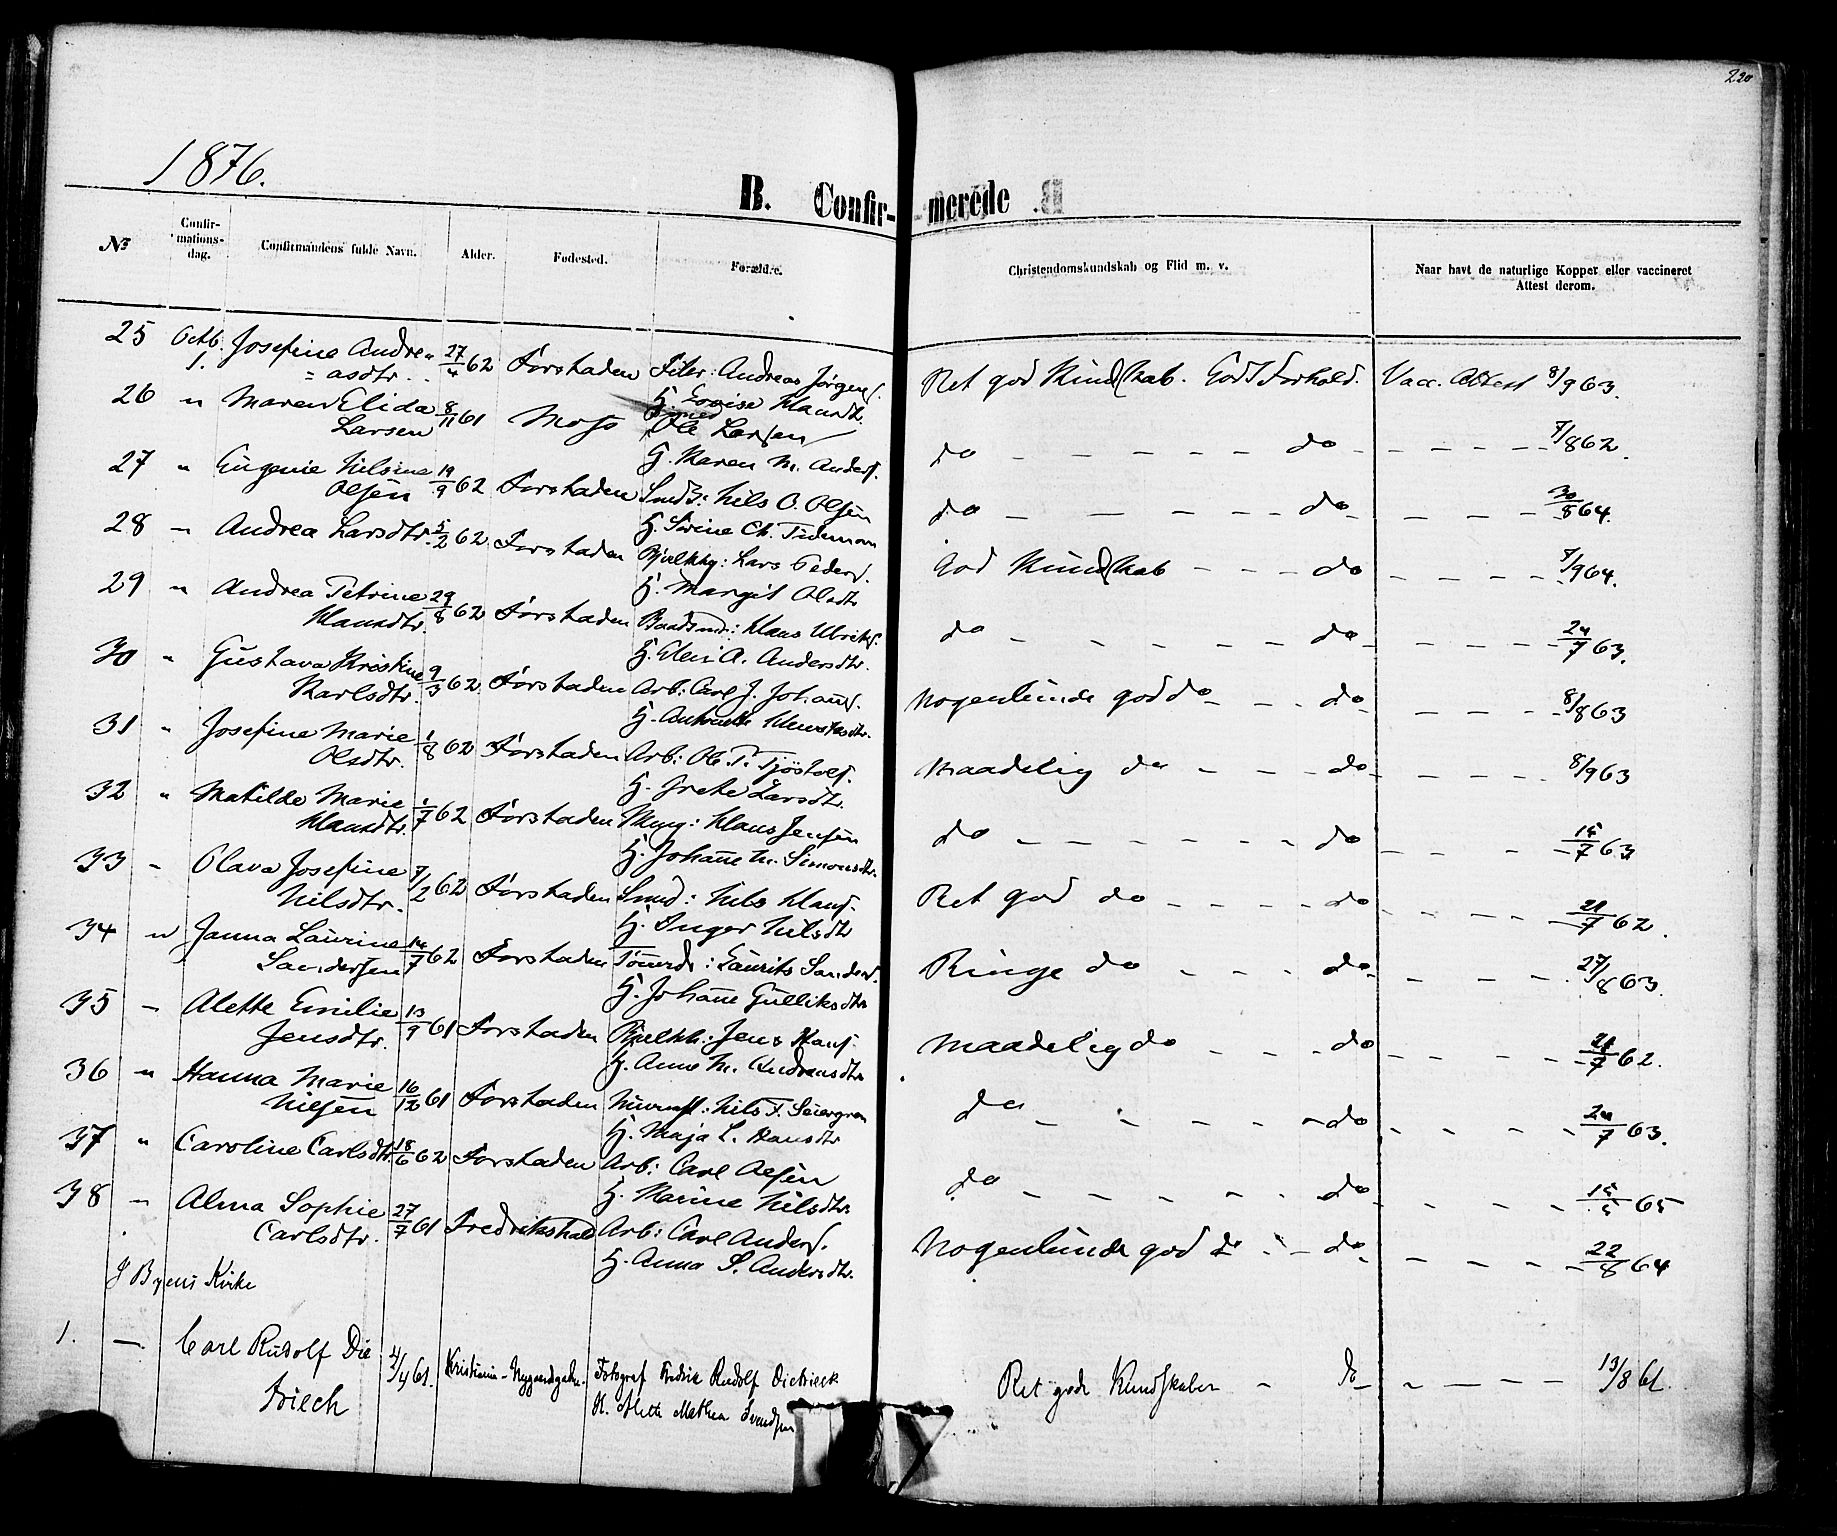 220
1876.
B. Confir- merede
№
Confir-
mations-
dag.
Confirmandens fulde Navn.
Alder.
Fødested.
Forældre.
Christendomskundskab og Flid m. v.
Naar havt de naturlige Kopper eller vaccineret
Attest derom.
25 Octb. Josefine Andre- 27/4 62 Forstaden Filer: Andreas Jørgens. Ret god Kundskab. Godt Forhold. Vacc. Attest 8/9 63.
1. = asdtr. H. Lovise Klausdtr.
26 " Maren Elida 8/11 61 Moss Ole Larsen do - - - - - do - - - - 7/8 62.
Larsen H. Maren M. Anders.
27 " Eugenie Nilsine 19/9 62 Forstaden Smeds: Nils O. Olsen do - - - - do - - - - 30/8 64.
Olsen H. Sørine Ch. Tideman
28 " Andrea Larsdtr. 5/2 62 Forstaden Bjelkhg: Lars Peders. God Kundskab - - - do - - - - 7/9 64.
H. Margit Olsdtr
29 " Andrea Petrine 29/8 62 Forstaden Baadsmd: Klaus Ulriks. do - - - - - do - - - - 24/7 63.
Klausdtr. H. Eleri A. Andersdtr.
30 " Gustava Kristine 9/3 62 Forstaden Arb: Carl J. Johans. Nogenlunde god do - - - do - - - - 8/8 63
Karlsdtr. H.
31 " Josefine Marie 1/8 62 Forstaden Arb: Ol. T. Tjöstols. Maadelig do - - - do - - - - 8/9 63
Olsdtr. H. Grete Larsdtr.
32 " Matilde Marie 1/7 62 Forstaden Klaus Jensen do - - - - - do - - - - 15/7 63
Klausdtr. H. Johanne M. Simonsdtr.
33 " Olava Josefine 7/2 62 Forstaden Smed: Nils Klaus. Ret god do - - - - do - - - - 21/7 62.
Nilsdtr. H. Inger Nilsdtr
34 " Janna Laurine 14/7 62 Forstaden Tømrd: Laurits Sanders. Ringe do - - - do - - - - 27/8 63.
Sandersen H. Johanne Gulliksdtr
35 " Alette Emilie 13/9 61 Forstaden Bjelkh: Jens Hans. Maadelig do - - - do - - - - 21/7 62.
Jensdtr. H. Anne M. Andreasdtr
36 " Hanna Marie 16/12 61 Forstaden Murmst: Nils F. Seiergren do - - - - - do - - - - 24/7 63.
Nilsen H. Maja L. Hansdtr
37 " Caroline Carlsdtr. 18/6 62 Forstaden Arb: Carl Olsen do - - - - - do - - - - 15/5 65
H. Karine Nilsdtr.
38 " Alma Sophie 27/7 61 Fredrikshald Arb: Carl Anders. Nogenlunde god do - - do - - - - 22/8 64
Carlsdtr. H. Anna S. Andersdtr.
I Byens Kirke
1. — Carl Rudolf Die 4/4 61. Kristiania - Nygaardgaden. Fotograf Fredrik Rudolf Dietriech Ret gode Kundskaber - do - - - - 13/8 61.
triech H. Alette Mathea Svendsen